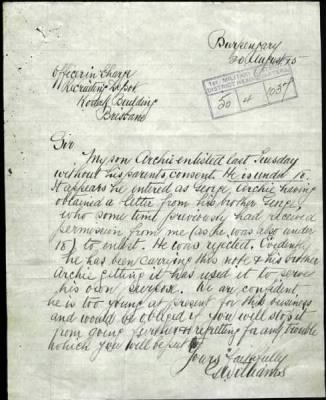 Burpengary
30 August 15
1ST MILITARY
DISTRICT HEADQUARTERS
50 4 1037
Officer in Charge
Recruiting Depot
Kodak Building
Brisbane
Sir
My son Archie enlisted last Tuesday
without his parents consent. He is under 18.
It appears he entered as George, Archie having
obtained a letter from his brother George
who some time previously had received
permission from me (as he was also under
18) to enlist. He was rejected. Evidently
he has been carrying this note & his brother
Archie getting it has used it to serve
his own purpose. We are confident
he is too young at present for this business
and would be obliged if you will stop it
from going further & regretting for any trouble
which you will be put
Yours Faithfully
Williams